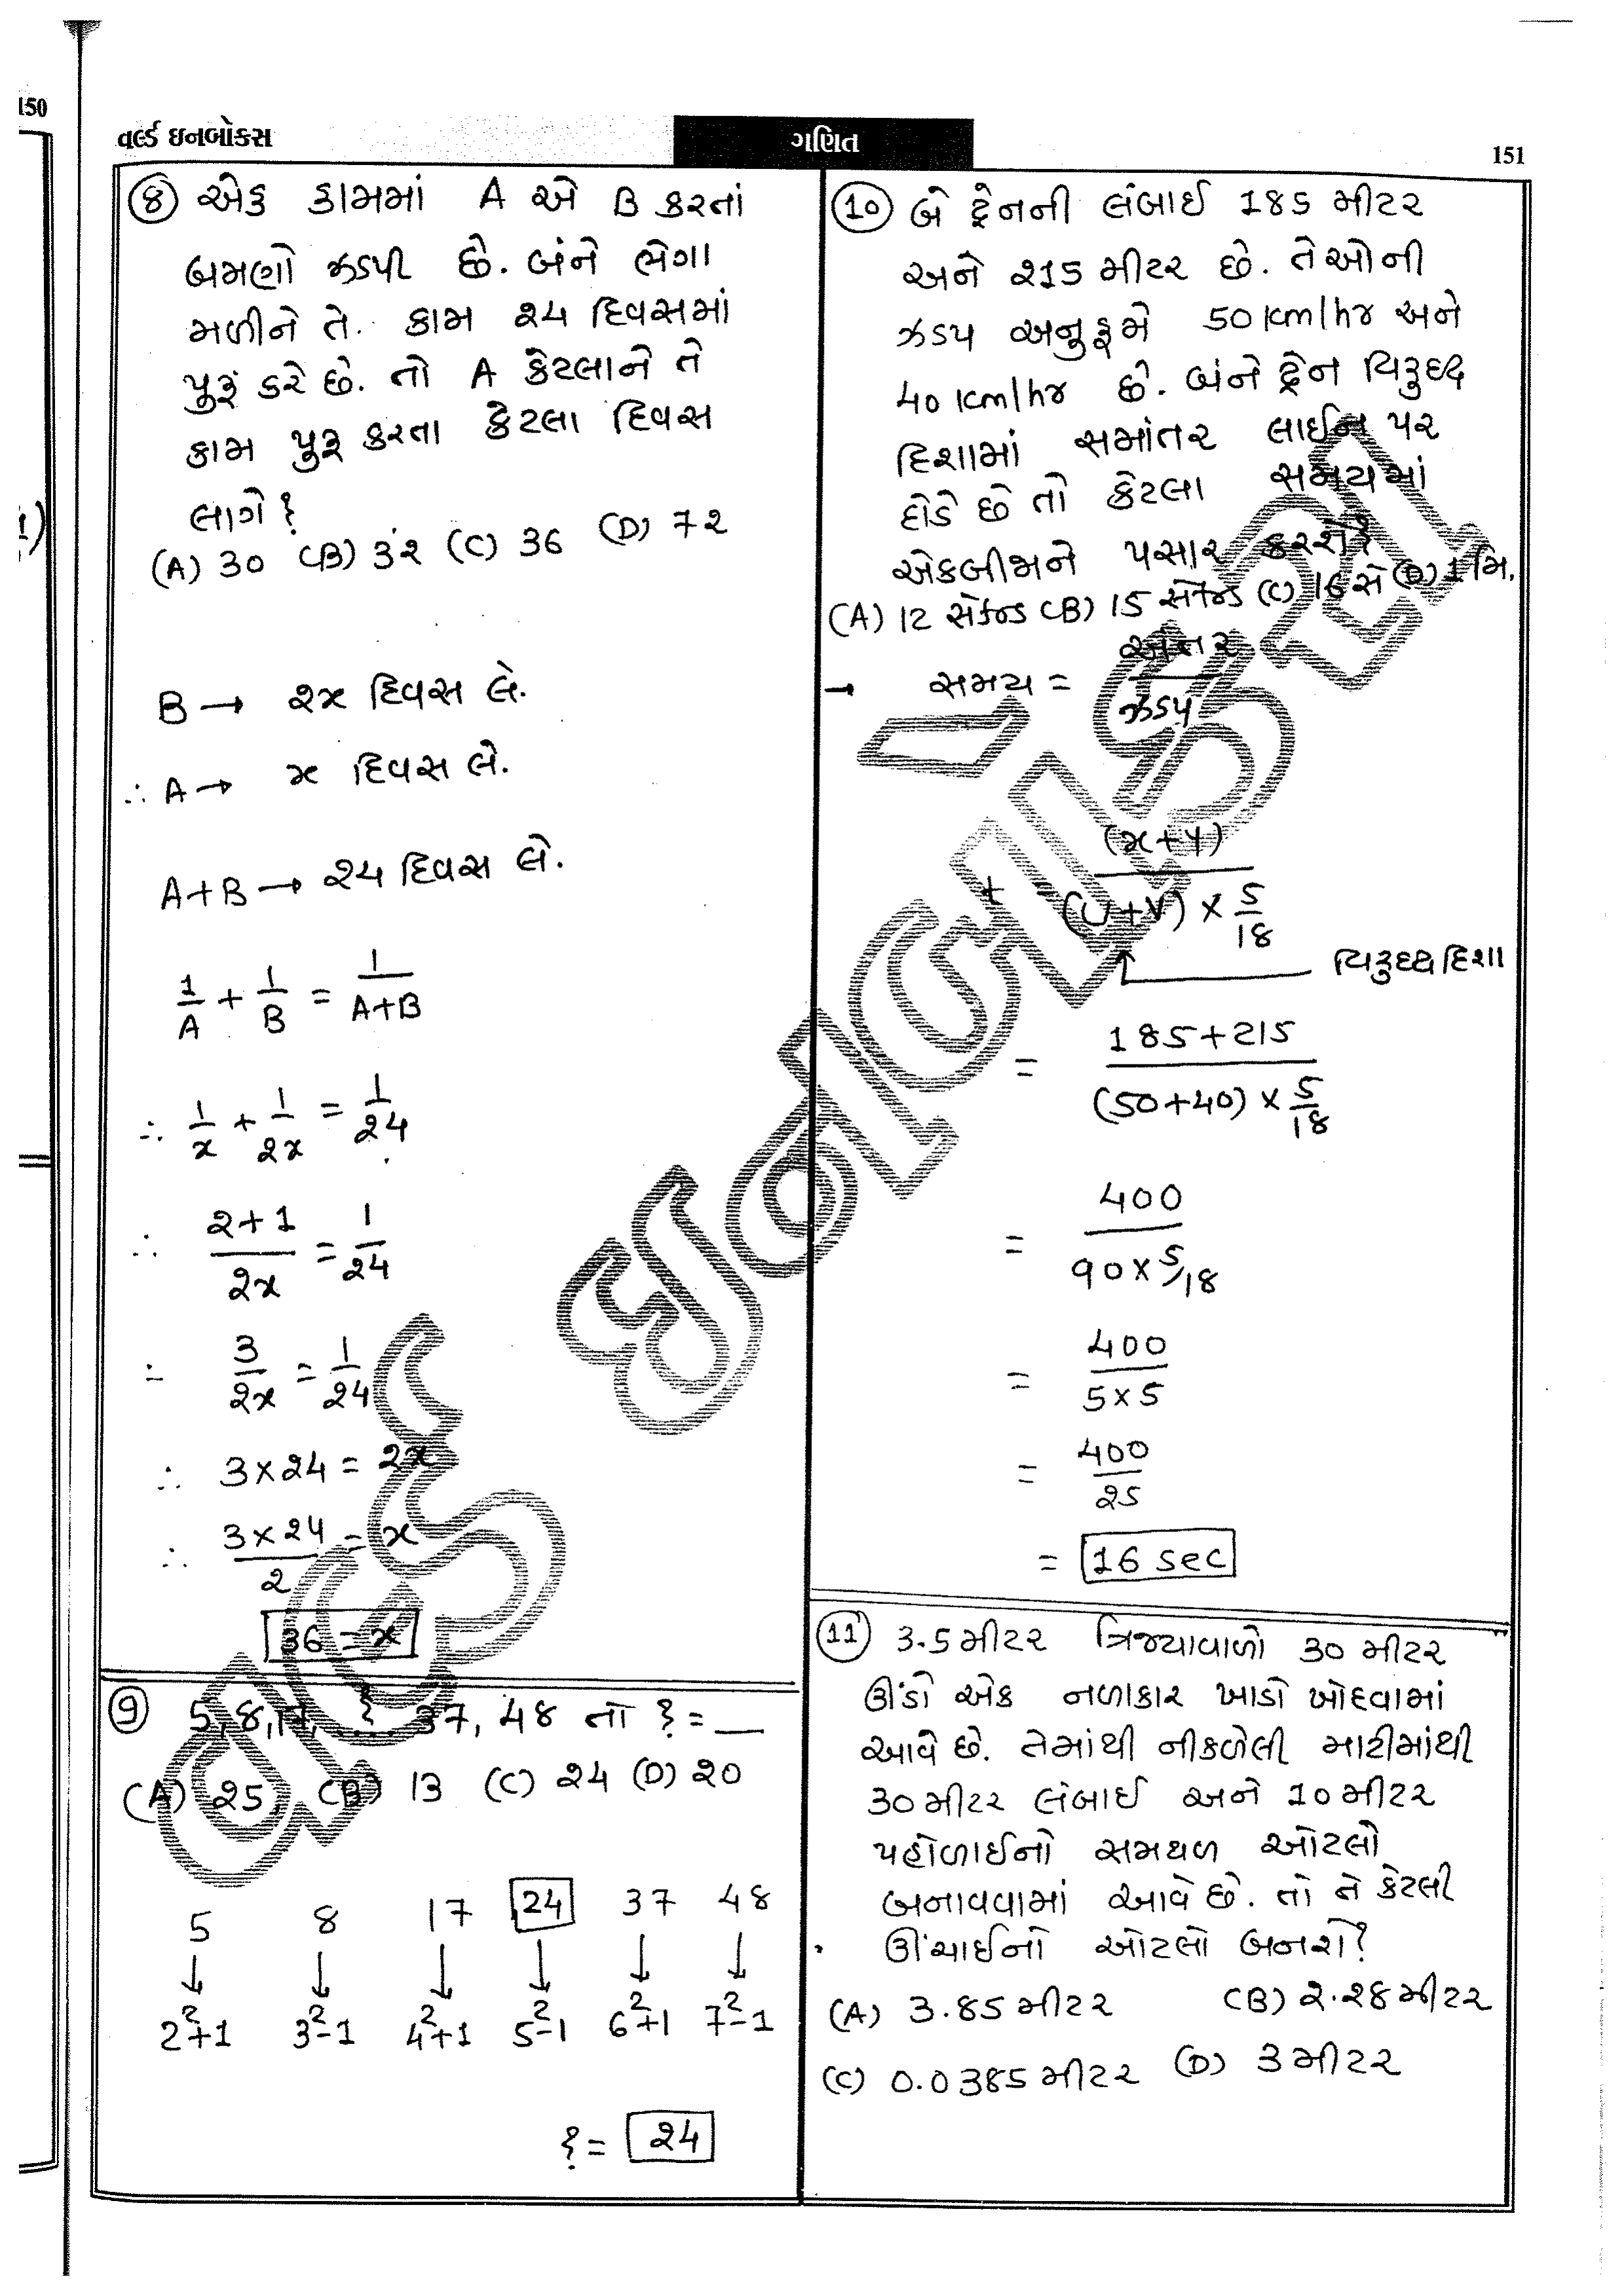 150
વર્લ્ડ ઇનબોક્સ
ગણિત
151
1)
⑧ એક કામમાં A એ B કરતાં
બમણો ઝડપી છે. બંને ભેગા
મળીને તે. કામ ૨4 દિવસમાં
પુરૂં કરે છે. તો A કેટલાને તે
કામ પુરૂ કરતા કેટલા દિવસ
લાગે ?
(A) 30 (B) 3૨ (C) 36 (D) 7૨
B → ૨x દિવસ લે.
∴ A → x દિવસ લે.
A+B → ૨4 દિવસ લે.
1/A + 1/B = 1/A+B
∴ 1/x + 1/2x = 1/24
∴ ૨+1/૨x = 1/૨4
= 3/૨x = 1/૨4
∴ 3×૨4 = ૨x
∴ 3×૨4/2 = x
36 = x
⑨ 5, 8, 17, ? 37, 48 તો ? = __
(A) ૨5, (B) 13 (C) ૨4 (D) ૨0
5 8 17 24 37 48
↓ ↓ ↓ ↓ ↓ ↓
2²+1 3²-1 4²+1 5²-1 6²+1 7²-1
? = ૨4
⑩ બે ટ્રેનની લંબાઈ 185 મીટર
અને ૨15 મીટર છે. તેઓની
ઝડપ અનુક્રમે 50 km/hr અને
40 km/hr છે. બંને ટ્રેન વિરુદ્ધ
દિશામાં સમાંતર લાઈન પર
દોડે છે તો કેટલા સમયમાં
એકબીજાને પસાર કરશે?
(A) 12 સેકન્ડ (B) 15 સેકન્ડ (C) 16 સે (D) 1 મિ.
→ સમય = અંતર/ઝડપ
t = (x+y)/(U+V) × 5/18
વિરુદ્ધ દિશા
= 185+215/(50+40) × 5/18
= 400/90×5/18
= 400/5×5
= 400/૨5
= 16 sec
⑪ 3.5 મીટર ત્રિજ્યાવાળો 30 મીટર
ઊંડો એક નળાકાર ખાડો ખોદવામાં
આવે છે. તેમાંથી નીકળેલી માટીમાંથી
30 મીટર લંબાઈ અને 10 મીટર
પહોળાઈનો સમથળ ઓટલો
બનાવવામાં આવે છે. તો તે કેટલી
ઊંચાઈનો ઓટલો બનશે?
(A) 3.85 મીટર (B) ૨.૨8 મીટર
(C) 0.0385 મીટર (D) 3 મીટર